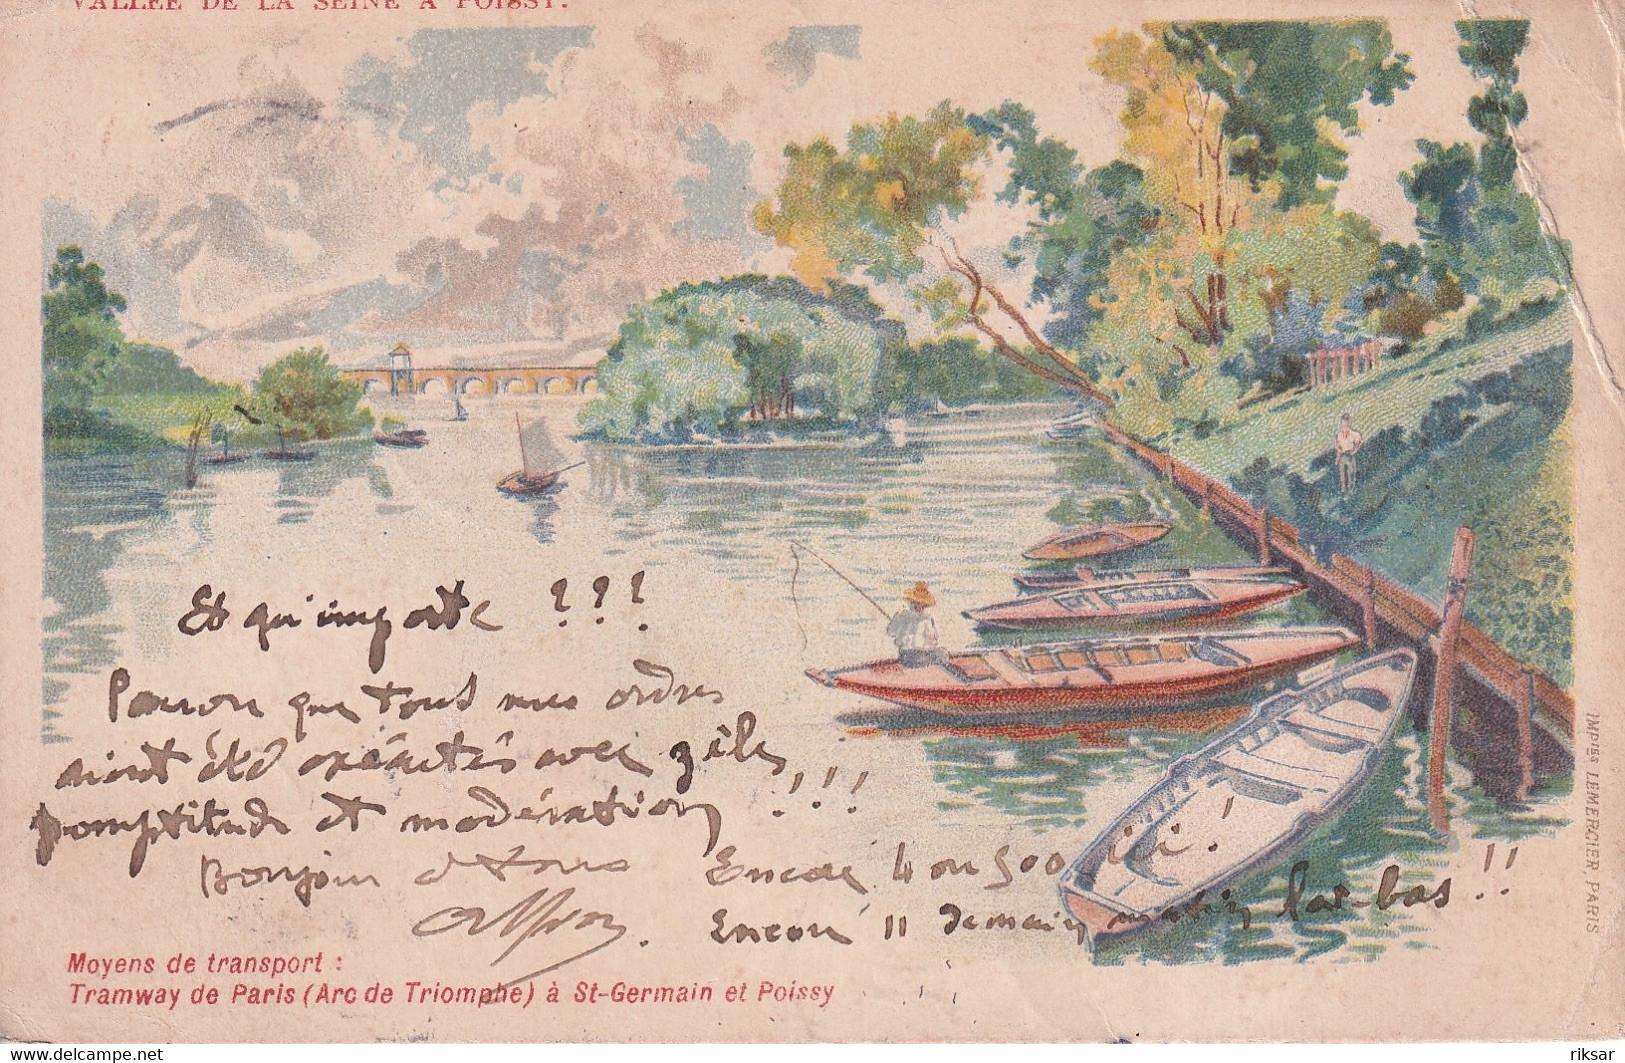 VALLÉE DE LA SEINE A POISSY.
Et qu'importe ???
Pourvu que tous mes ordres
aient été exécutés avec zèle,
promptitude et modération !!!!
Bonjour à tous Encore 4 ou 500 ici !
Encore 11 demain matin là-bas !!
Moyens de transport :
Tramway de Paris (Arc de Triomphe) à St-Germain et Poissy
IMPies LEMERCIER, PARIS
www.delcampe.net
riksar